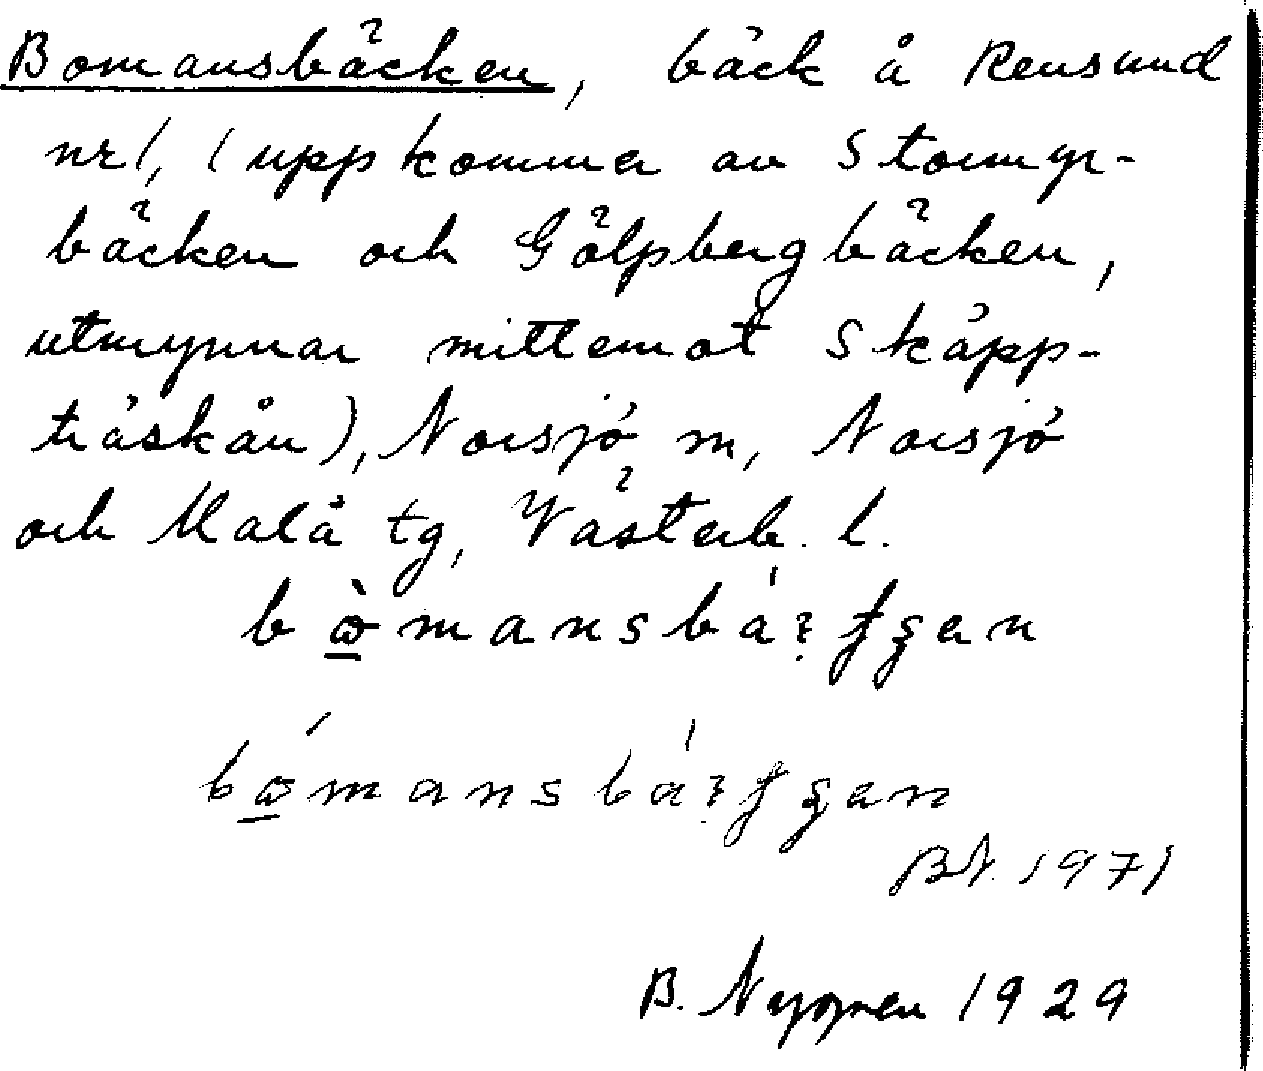 Bomansbäcken, bäck å Rensund
nr 1, (uppkommer av Stormyr-
bäcken och Gölpbergbäcken,
utmynnar mittemot Skäpp-
träskån), Norsjö m, Norsjö
och Malå tg, Västerb. l.
BN. 1971
B. Nygren 1929